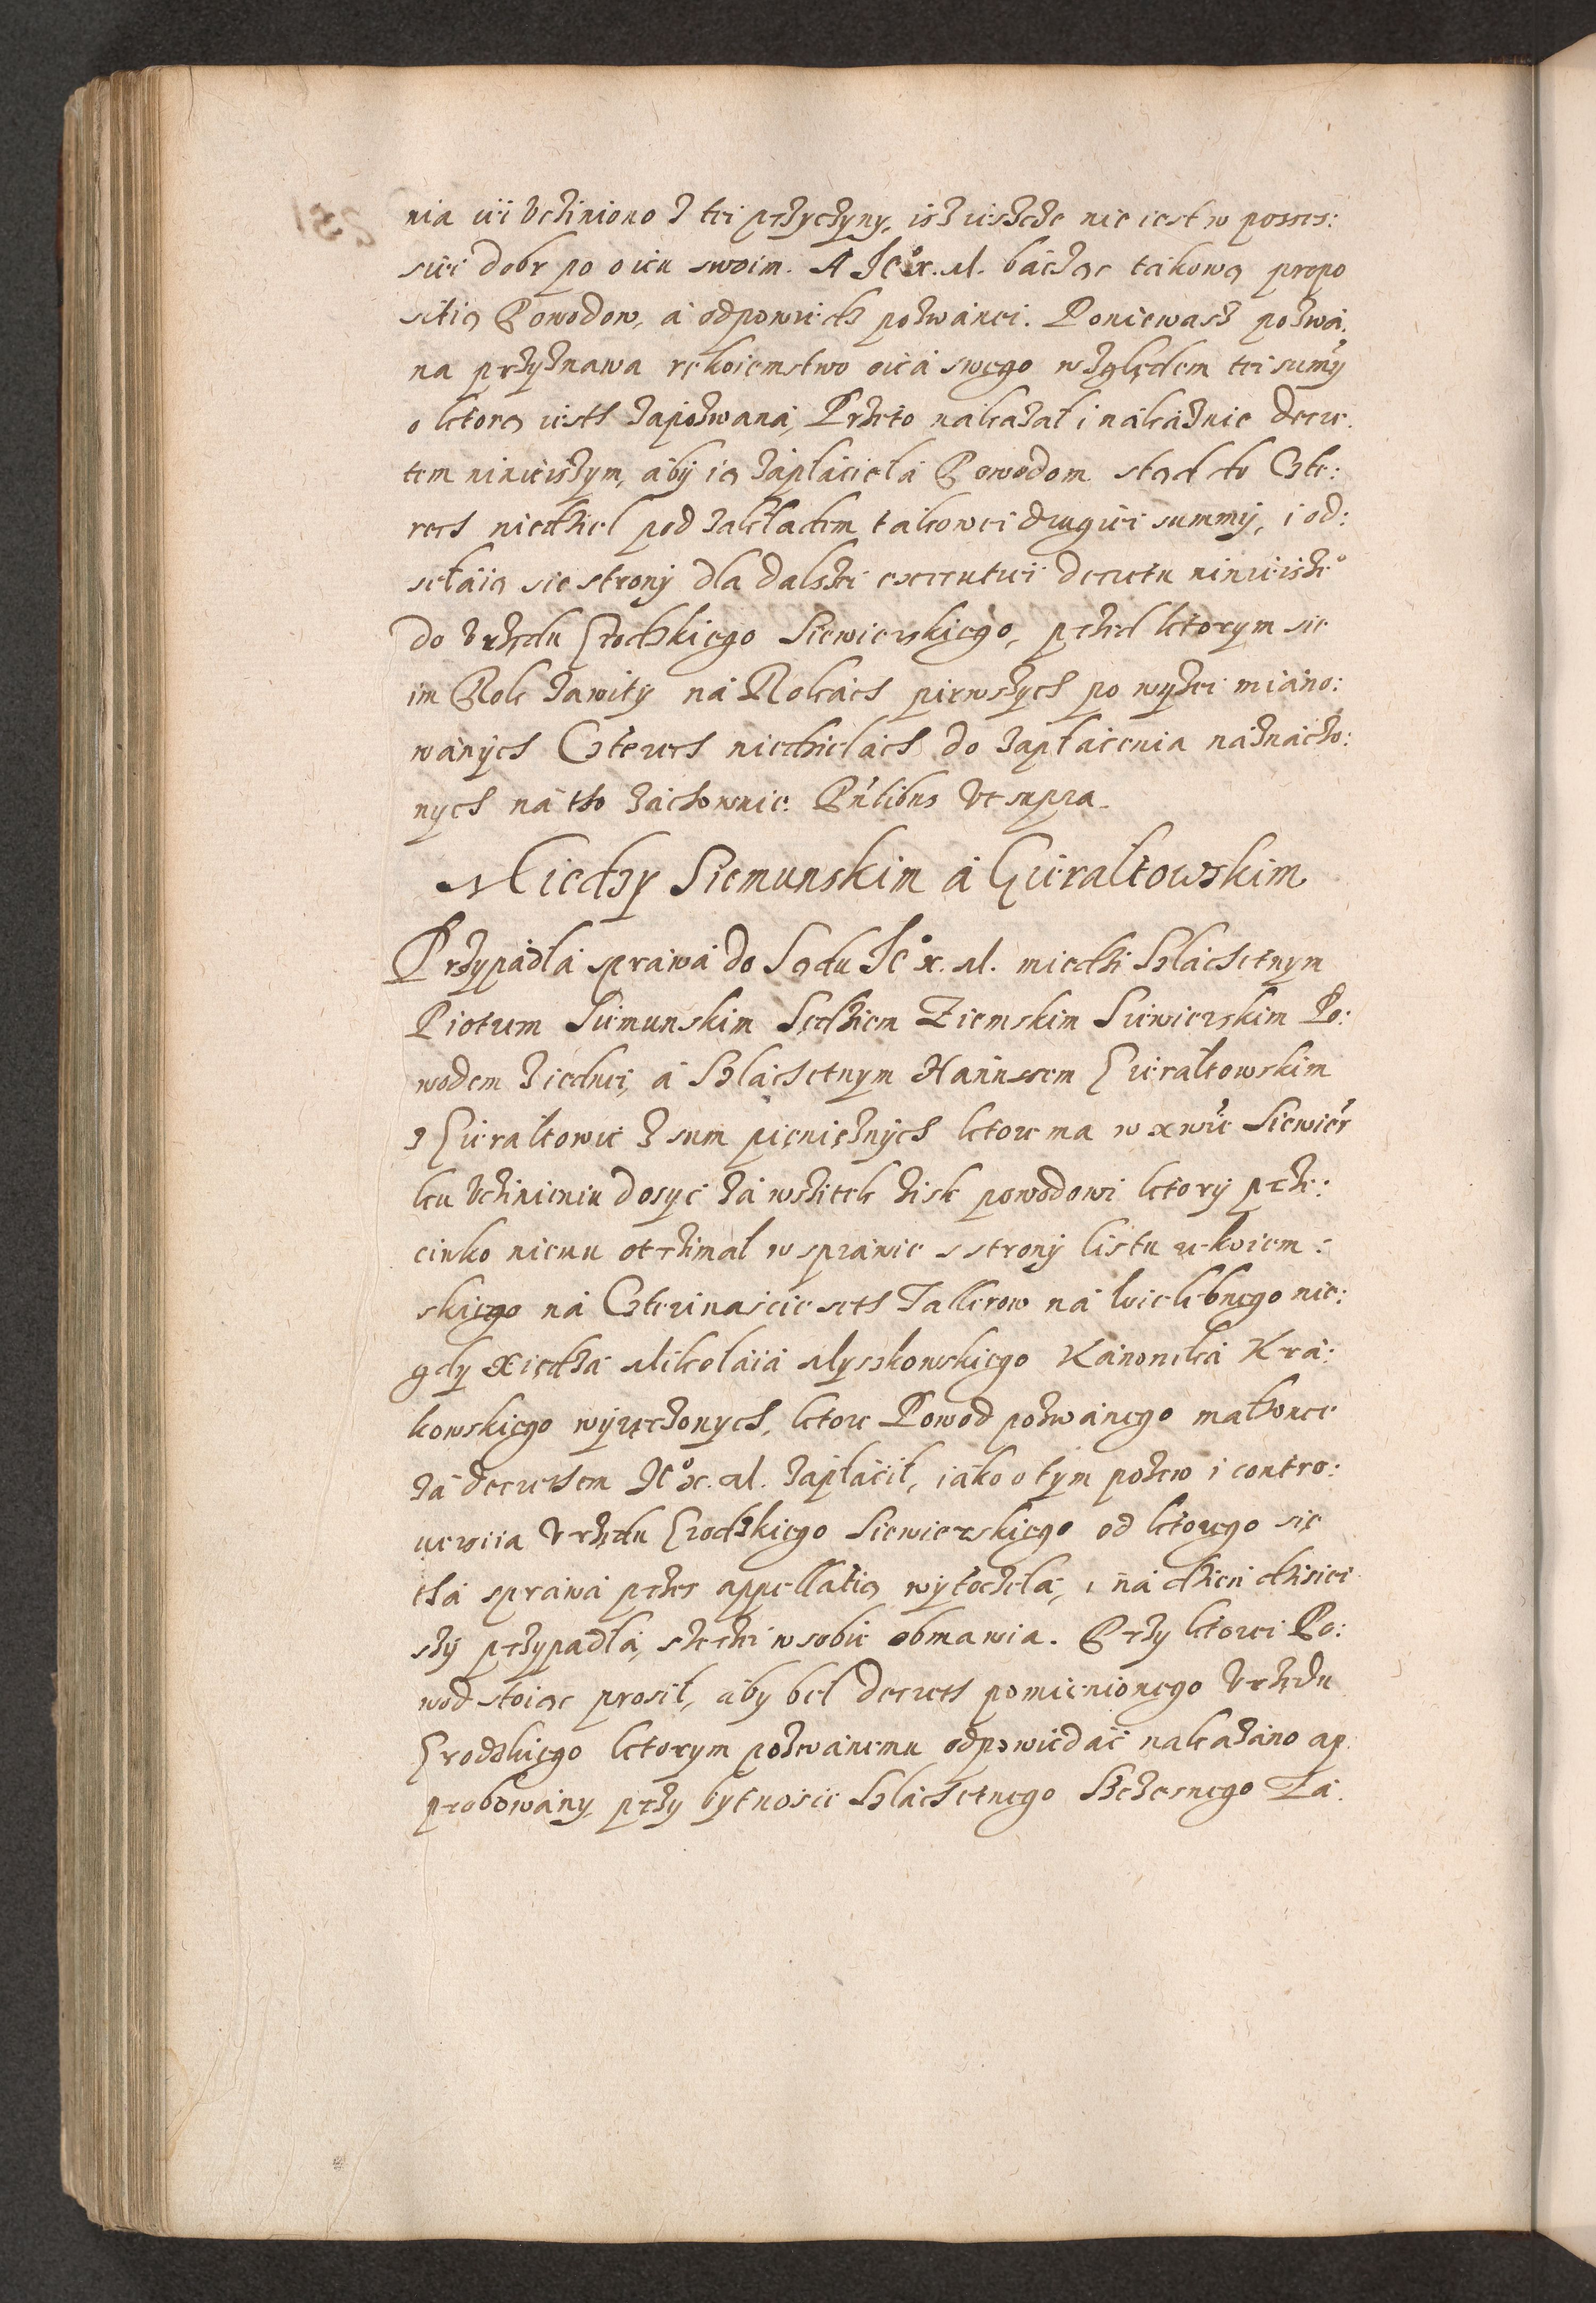 nia iéi vcziniono z tei przyczyny, isz iescze nie iest w posses:
siéi dobr po oicu swoim. A Jeº x. M. bacząc takową propo
sitią Powodow, á odpowiedz pozwánei. Poniewasz pozwá:
na przyznawa rękoiemstwo oicá swego względem tei sumy
o ktorą iesth zapozwaná, Przeto nakazał i nákazuie decre:
tem ninieiszym, áby ią zápłáciełá Powodom stąd do Czte:
rech niedziel pod zakładem takowei drugiei summy, i od:
sełáią sie strony dla dalszei executiei decretu ninieiszeº
do vrzędu Grodzkiego Siewierskiego, przed ktorym sie
im Rok zawity ná Rokách pirwszych po wyżei miáno:
wánych Cztérech niedzielách do zapłácenia náznáczo:
nych ná tho záchowuie. Pntibus vt supra.
Miedzy Siemunskim á Gierałtowskim
Przypádlá spráwá do Sądu Jeº x. M. miedzi Szlachetnym
Piotrem Siemunskim Sędziem Ziemskim Siewierskim Po:
wodem z iednei, á Szláchetnym Hánussem Gierałtowskim
z Gierałtowic z sum pieniężnych ktore ma w xwie Siewier
ku vczinieniu dosyć zá wszitek zisk powodowi ktory prze:
ciwko niemu otrzimał w spráwie s strony listu rękoiem:
skiego ná Czterinaście seth Tallerow ná wielebnego nie:
gdy Xiędzá Mikołáiá Myszkowskiego Kánoniká Krá:
kowskiego wyręczonych, ktore Powod pozwánego małżonce
zá decrethem Jeº x. M. zápłácił, iáko o tym pozew i contro:
uersiia vrzędu Grodzkiego Siewierskiego od ktorego się
thá spráwá przes appellatią wytoczełá, i ná dzień dzisiei
szy przypadłá, szerzei w sobie obmawia. Przy ktorei Po:
wod stoiąc prosił, áby beł decreth pomienionego vrzędu
Grodzkiego ktorym pozwánemu odpowiedáć nakazáno ap
probowány przy bytnosci Szláchetnego Szczesnego Zá: